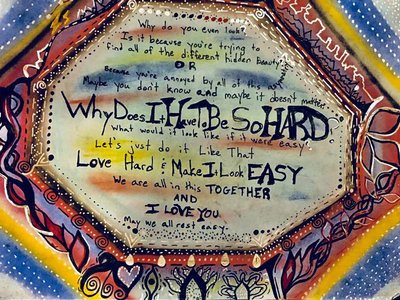 Why do you even look?
Is it because you're trying to
find all of the different hidden beauty?
OR
Because you're annoyed by all of this art
Maybe you don't know and maybe it doesn't matter.
Why Does It Have To Be So HARD
What would it look like if it were easy
Let's just do it Like That
Love Hard & Make It Look EASY
We are all in this TOGETHER
AND
I LOVE YOU
May we all rest easy.